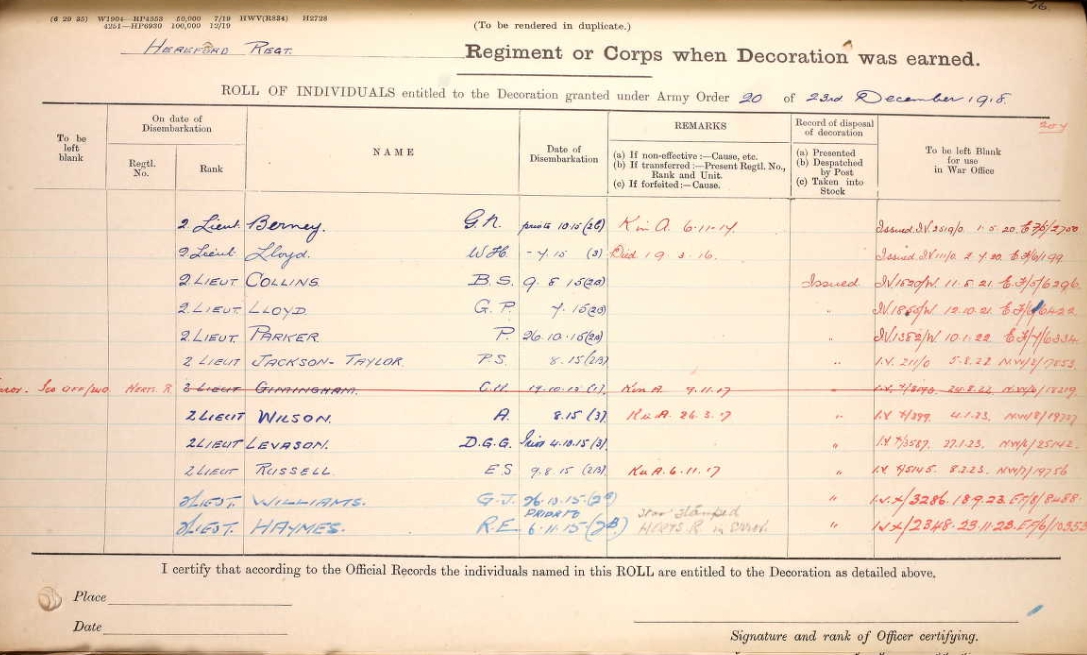 76.
(6 29 35) W1904—RP4353 50,000 7/19 HWV(R334) H2728
4251—HP6930 100,000 12/19
(To be rendered in duplicate.)
HEREFORD REGT. Regiment or Corps when Decoration was earned.
ROLL OF INDIVIDUALS entitled to the Decoration granted under Army Order 20 of 23rd December 1918.
To be left blank
On date of Disembarkation
Regtl. No.
Rank
NAME
Date of Disembarkation
REMARKS
(a) If non-effective:—Cause, etc.
(b) If transferred:—Present Regtl. No., Rank and Unit.
(c) If forfeited:—Cause.
Record of disposal of decoration
(a) Presented
(b) Despatched by Post
(c) Taken into Stock
To be left Blank for use in War Office
2 Lieut Berney. G.N. 10.15 (2B) K in A. 6.11.17 Issued 1.5.20.
2 Lieut Lloyd. W.H. -7.15 (3) Died 19.3.16. Issued 2.7.20.
2 LIEUT COLLINS B.S. 9.8.15(2B) Issued IV1520/W. 11.5.21. E7/5/6296.
2 LIEUT. LLOYD. G.P. 7.15(2B) " 12.10.21.
2 LIEUT. PARKER P. 26.10.15(2B) " IV1352/W. 10.1.22. E7/7/6334.
2 LIEUT JACKSON-TAYLOR P.S. 8.15(2B) " 5.8.22
HERTS. R 2 LIEUT GIMINGHAM. C.H. K in A. 9.11.17 " 24.8.22
2 LIEUT WILSON. A. 8.15 (3) K in A. 26.3.17 " 4.1.23.
2 LIEUT LEVASON. D.G.G. 4.10.15(3) " 27.1.23. NW/6/25142.
2 LIEUT RUSSELL. E S 9.8.15 (2B) K in A. 6.11.17 " 8.2.23. NW/7/19756
2/LIEUT. WILLIAMS. G.J. 26.10.15(2B) " IV.X/3286. 18.9.23. EF/8/8488.
2/LIEUT. HAYMES. R.E PRIOR TO 6.11.15(2B) Star stamped HERTS. R in error. " IV X/2348. 23.11.23. EF/6/10353
I certify that according to the Official Records the individuals named in this ROLL are entitled to the Decoration as detailed above.
Place
Date
Signature and rank of Officer certifying.